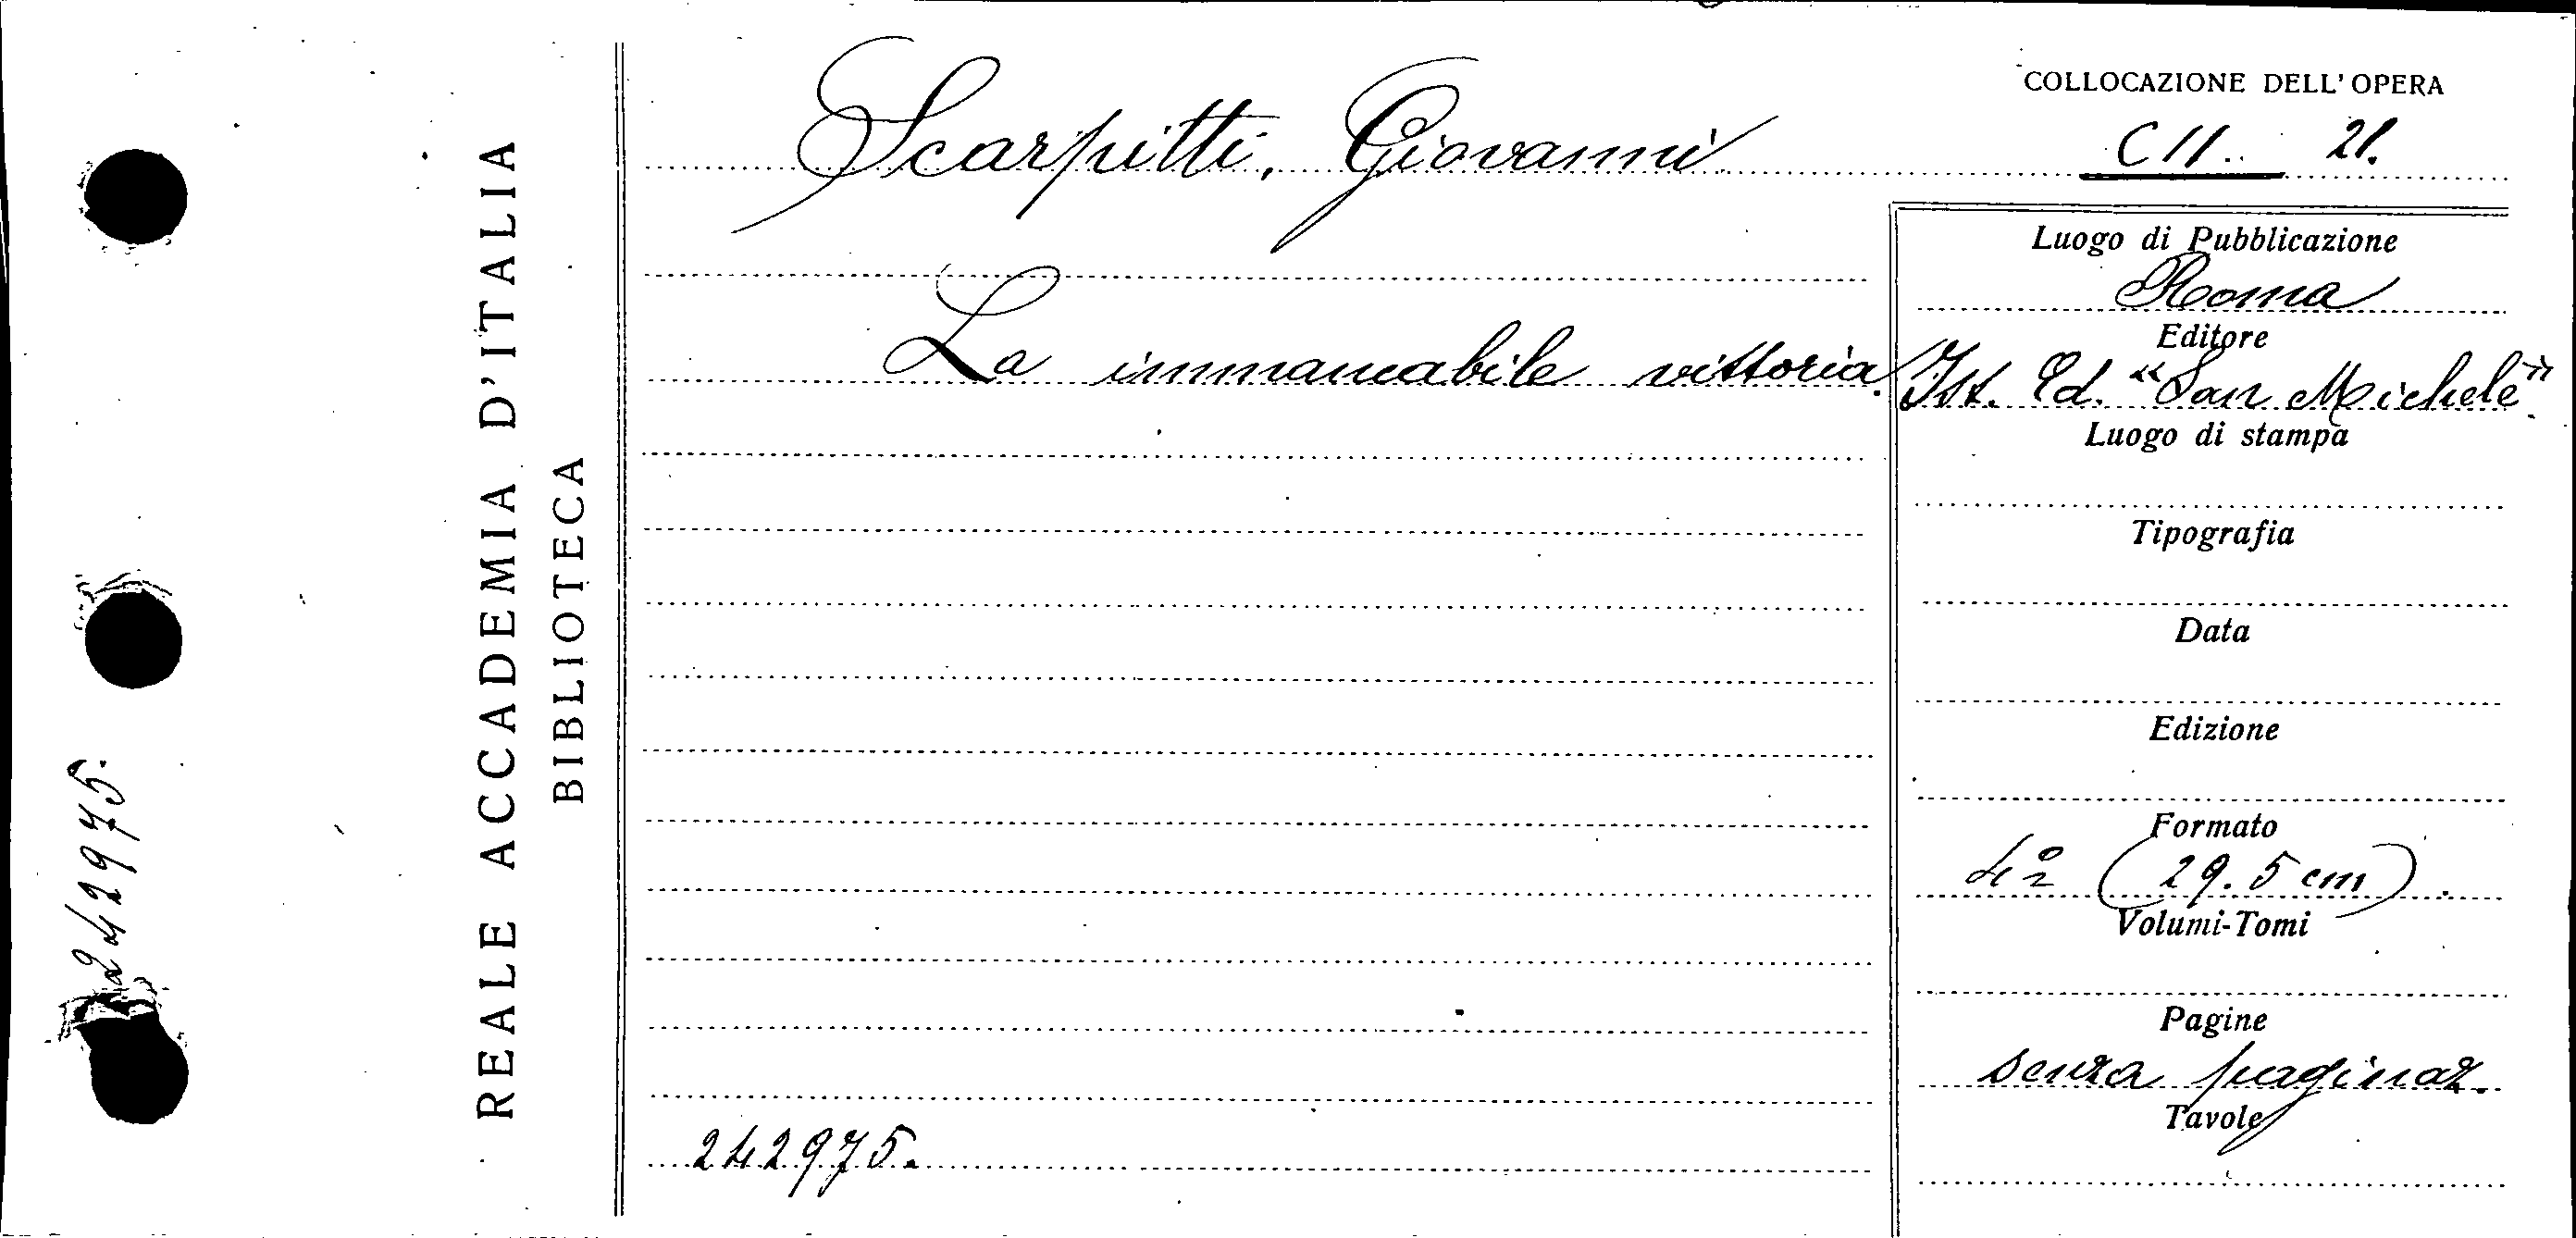 242975.
REALE ACCADEMIA D'ITALIA
BIBLIOTECA
Scarpitti, Giovanni
La immancabile vittoria.
242975.
COLLOCAZIONE DELL'OPERA
C 11. 21.
Luogo di Pubblicazione
Roma
Editore
Ist. Ed. "San Michele".
Luogo di stampa
Tipografia
Data
Edizione
Formato
4º (29.5 cm).
Volumi-Tomi
Pagine
senza paginaz.
Tavole